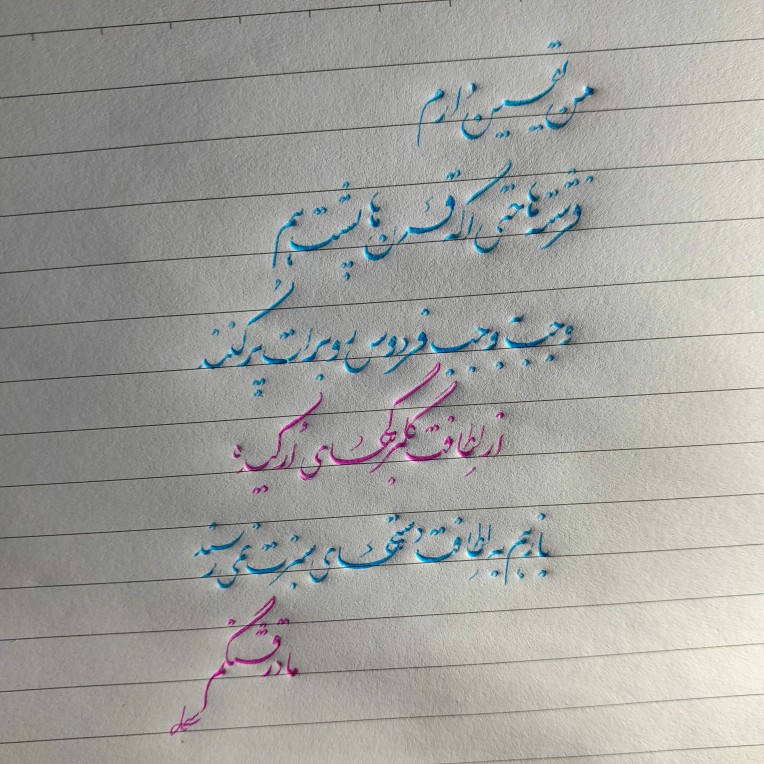 من یقین دارم
فرشته ها حتی اگه قرن ها پشت هم
وجب به وجب فردوس رو برات پر کنند
از لطافت گلبرگ های ارکیده
بازهم به لطافت دستهای سبزت نمی رسند
مادر قشنگم